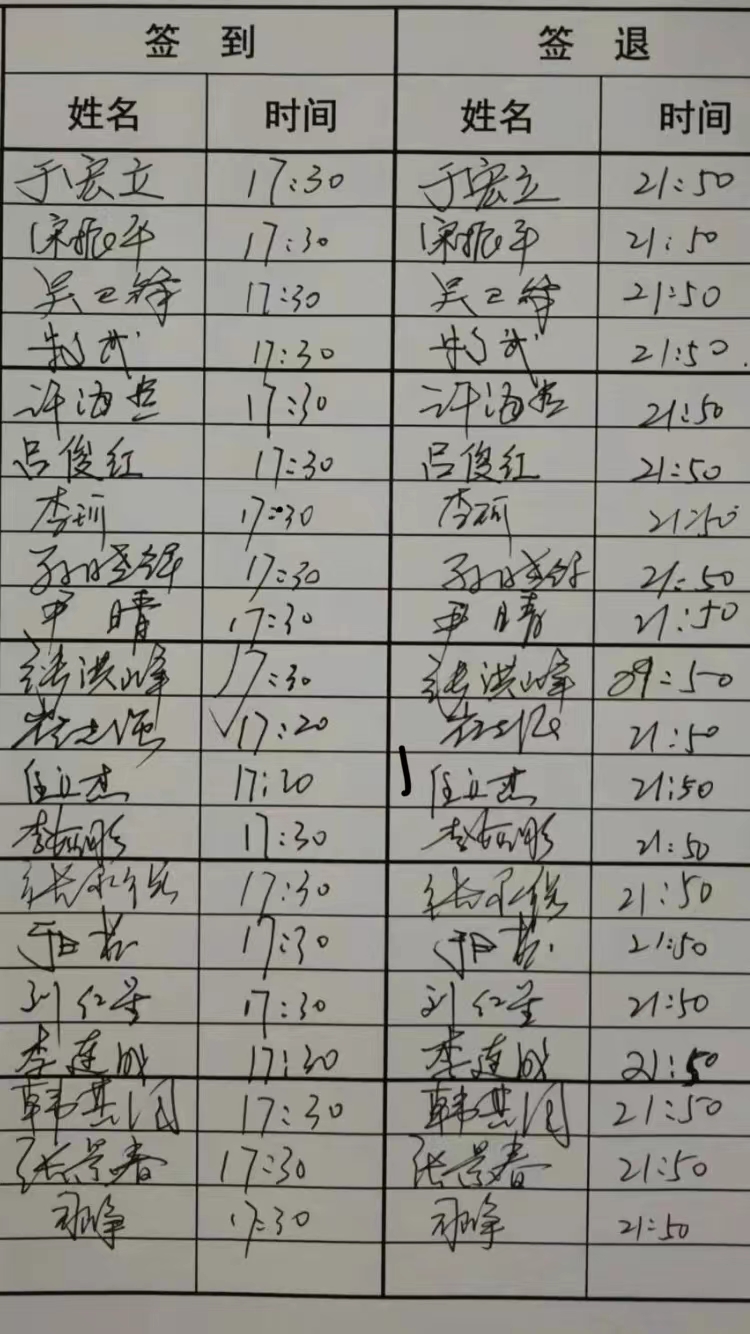 签 到 签 退
姓名 时间 姓名 时间
于宏立 17:30 于宏立 21:50
宋振平 17:30 宋振平 21:50
吴卫锋 17:30 吴卫锋 21:50
17:30 21:50
许海 17:30 许海 21:50
吕俊红 17:30 吕俊红 21:50
李 17:30 李 21:50
孙晓 17:30 孙晓 21:50
尹晴 17:30 尹晴 21:50
张洪峰 17:30 张洪峰 09:50
崔志强 17:20 崔志强 21:50
任立杰 17:20 任立杰 21:50
李 17:30 李 21:50
张永 17:30 张永 21:50
17:30 21:50
刘红星 17:30 刘红星 21:50
李连成 17:30 李连成 21:50
韩其润 17:30 韩其润 21:50
张景春 17:30 张景春 21:50
17:30 21:50